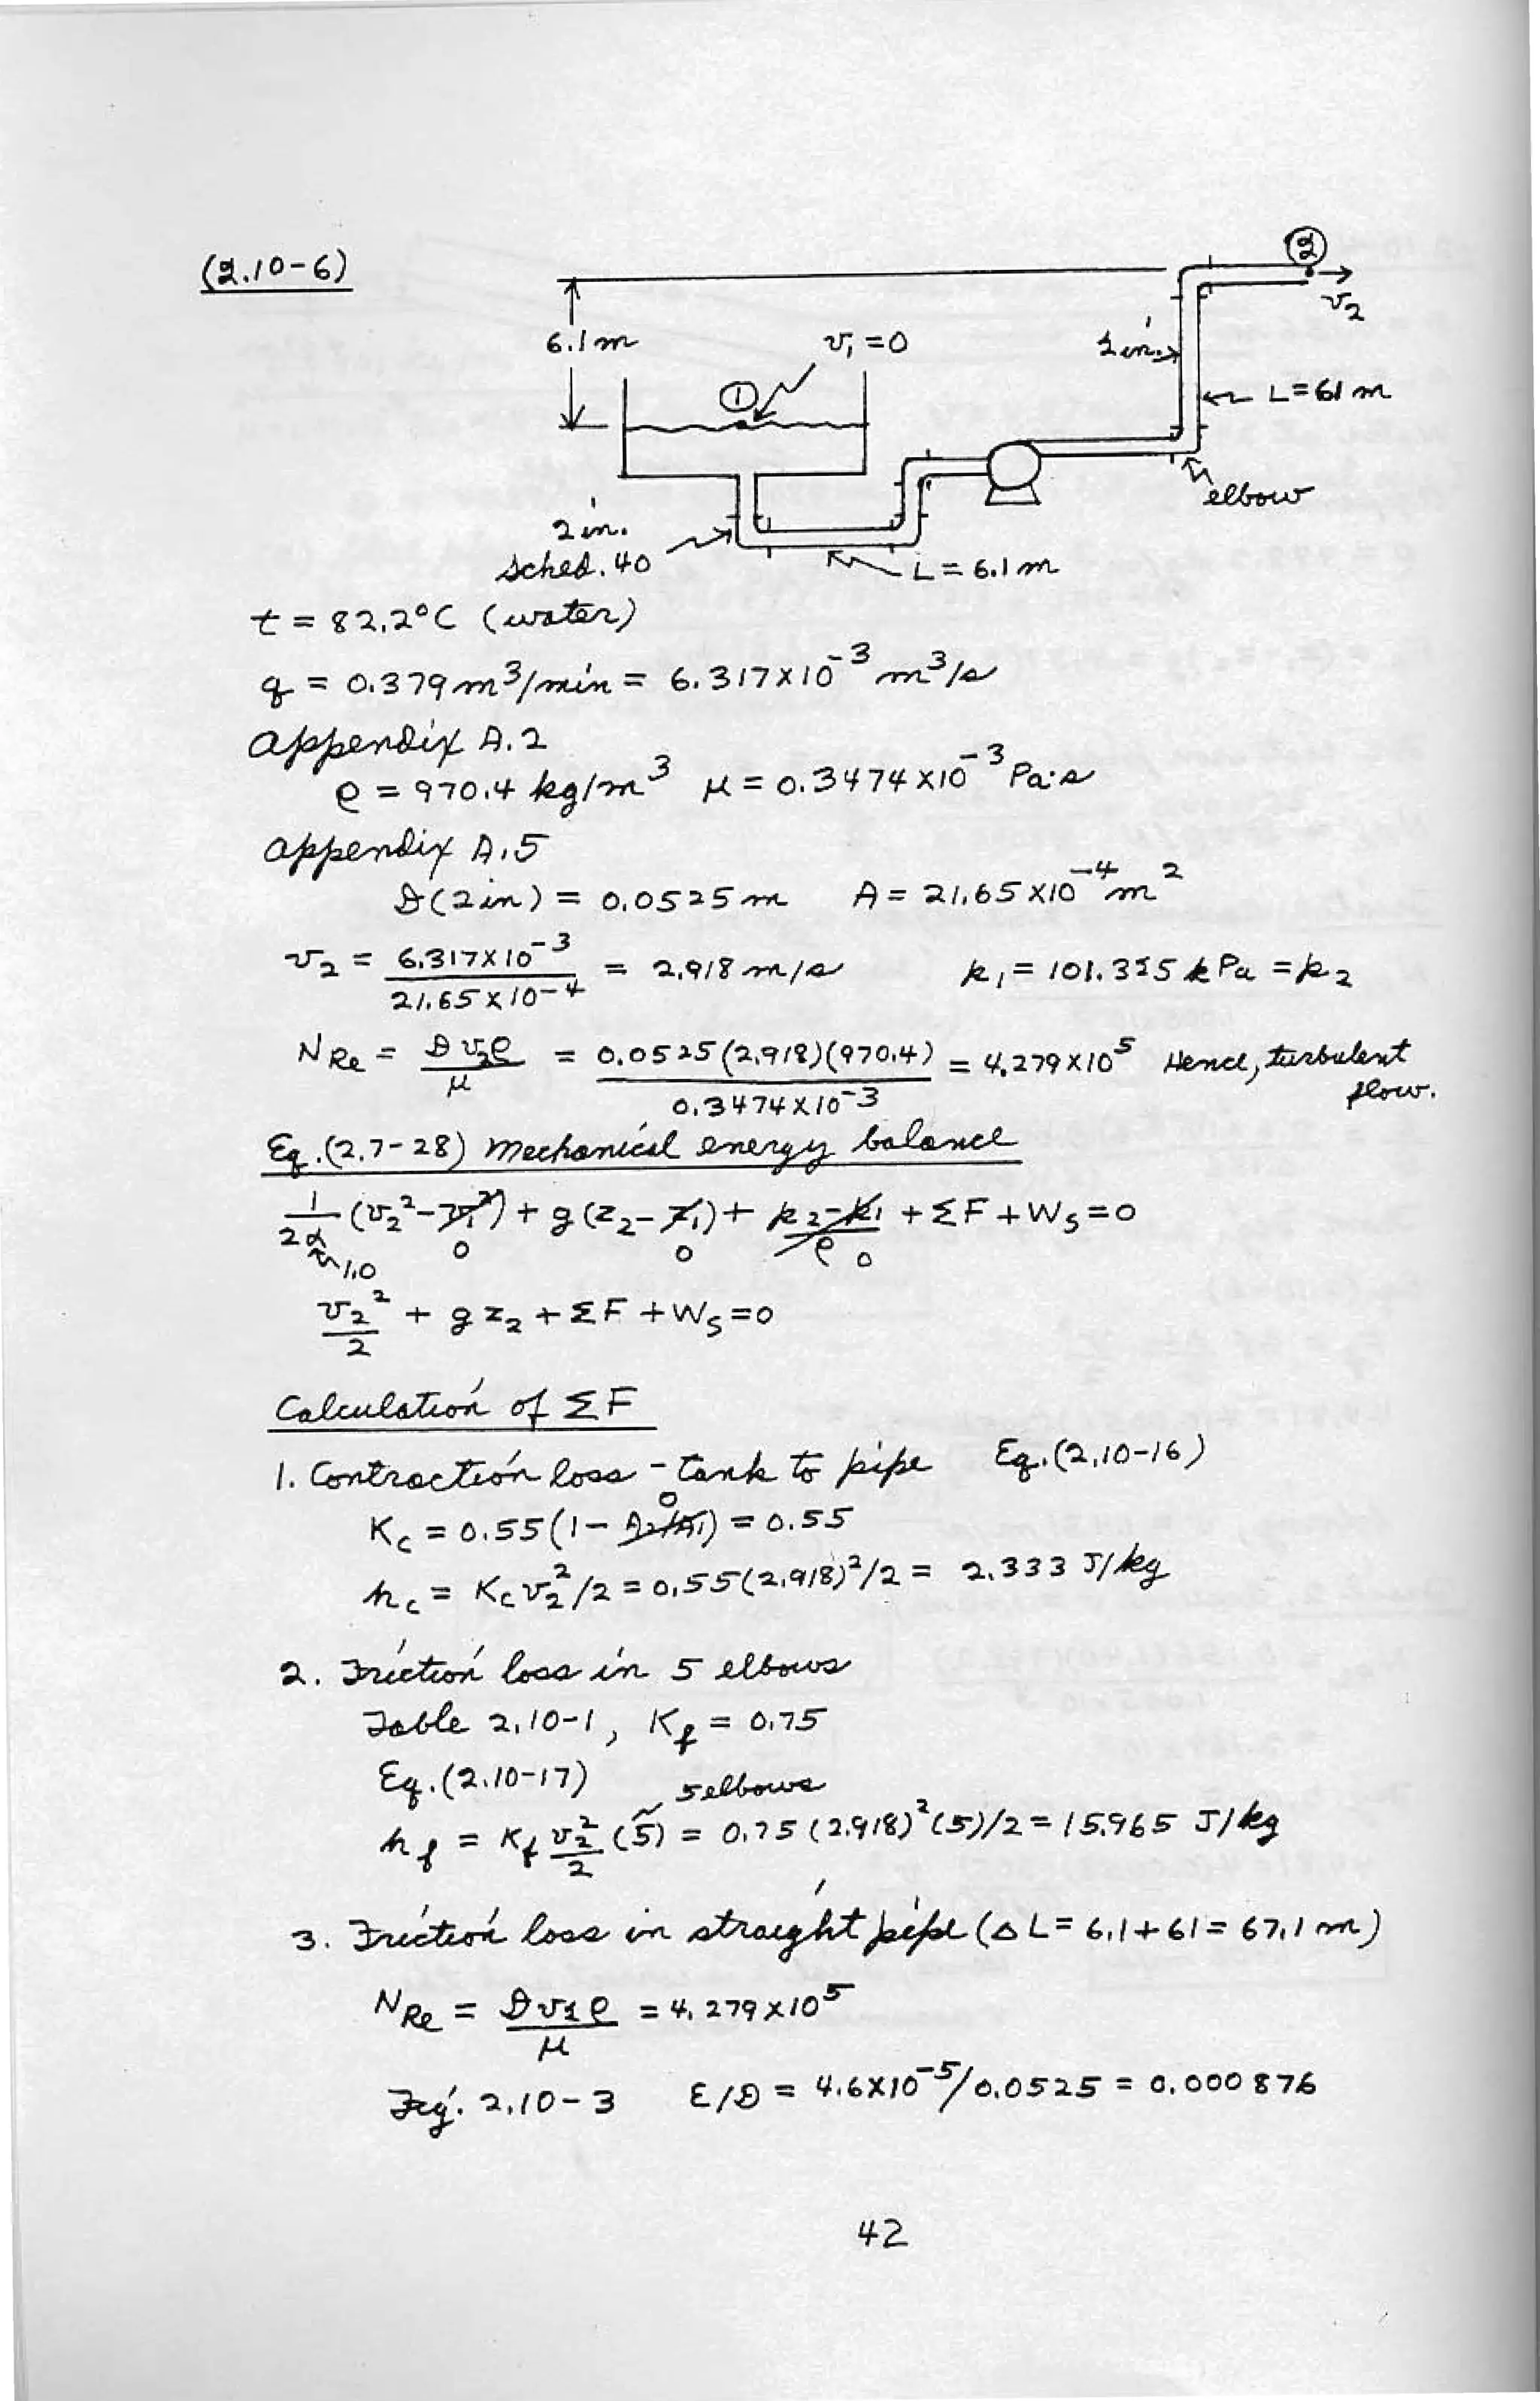 (2.10-6)
②
v₂
6.1 m
v₁ = 0
2 in.
①
L = 61 m
elbow
2 in.
Sched. 40
L = 6.1 m
t = 82.2°C (water)
q = 0.379 m³/min = 6.317×10⁻³ m³/s
Appendix A.2
ρ = 970.4 kg/m³ μ = 0.3474×10⁻³ Pa·s
Appendix A.5
D(2in) = 0.0525 m A = 21.65×10⁻⁴ m²
v₂ = 6.317×10⁻³ / 21.65×10⁻⁴ = 2.918 m/s p₁ = 101.325 kPa = p₂
N_Re = D v₂ρ / μ = 0.0525(2.918)(970.4) / 0.3474×10⁻³ = 4.279×10⁵ Hence, turbulent flow.
Eq.(2.7-28) Mechanical energy balance
1/2α (v₂² - v₁²) + g(z₂ - z₁) + (p₂ - p₁)/ρ + ΣF + W_s = 0
1.0 0 0 0
v₂²/2 + g z₂ + ΣF + W_s = 0
Calculation of ΣF
1. Contraction loss - tank to pipe Eq.(2.10-16)
K_c = 0.55(1 - A₂/A₁) = 0.55
0
h_c = K_c v₂²/2 = 0.55(2.918)²/2 = 2.333 J/kg
2. Friction loss in 5 elbows
Table 2.10-1, K_f = 0.75
Eq.(2.10-17) 5 elbows
h_f = K_f v₂²/2 (5) = 0.75(2.918)²(5)/2 = 15.965 J/kg
3. Friction loss in straight pipe (ΔL = 6.1 + 61 = 67.1 m)
N_Re = D v₂ ρ / μ = 4.279×10⁵
Fig. 2.10-3 ε/D = 4.6×10⁻⁵/0.0525 = 0.000876
42